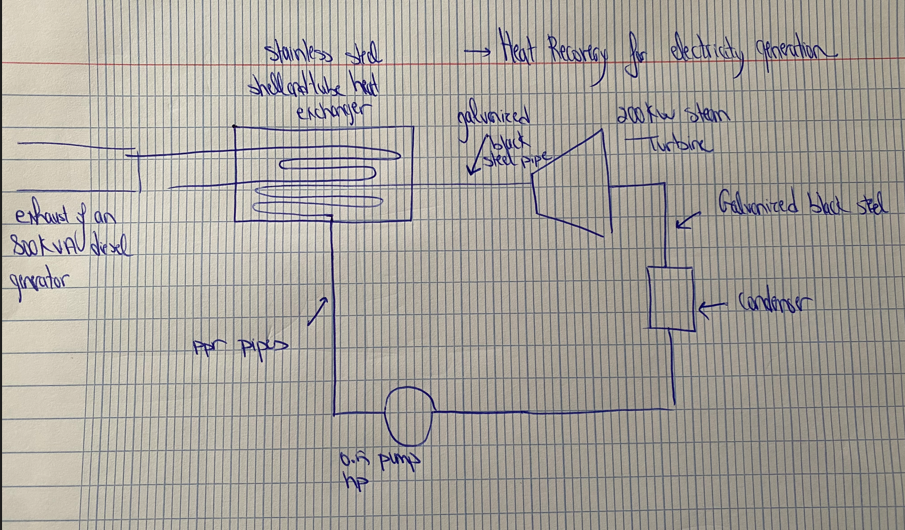 → Heat Recovery for electricity generation
stainless steel
shell and tube heat
exchanger
galvanized
black
steel pipe
200KW steam
Turbine
exhaust of an
800KVA diesel
generator
Galvanized black steel
← Condenser
ppr pipes
0.5 pump
hp